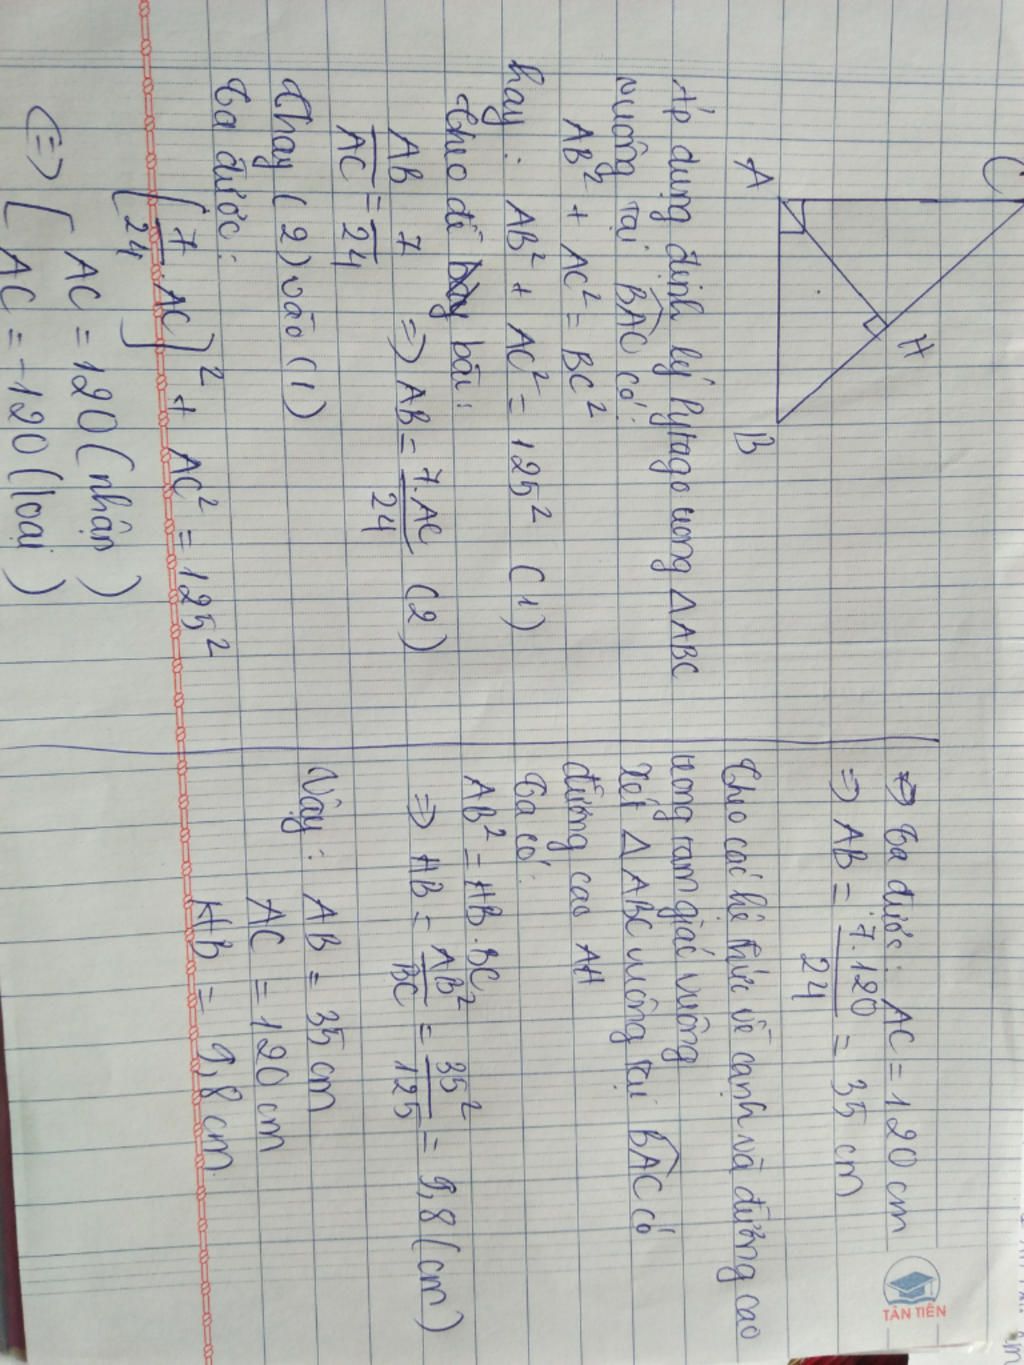 C
A
H
B
Áp dụng định lý Pytago trong ΔABC
vuông tại BAC có:
AB² + AC² = BC²
hay: AB² + AC² = 125² (1)
Theo đề bài:
AB/AC = 7/24 => AB = 7.AC/24 (2)
Thay (2) vào (1)
Ta được:
[7/24 . AC]² + AC² = 125²
<=> [ AC = 120 (nhận)
AC = -120 (loại)
=> Ta được: AC = 120 cm
=> AB = 7.120/24 = 35 cm
Theo các hệ thức về cạnh và đường cao
trong tam giác vuông
Xét Δ ABC vuông tại BAC có
đường cao AH
Ta có:
AB² = HB.BC
=> HB = AB²/BC = 35²/125 = 9,8 (cm)
Vậy: AB = 35 cm
AC = 120 cm
HB = 9,8 cm.
TÂN TIẾN